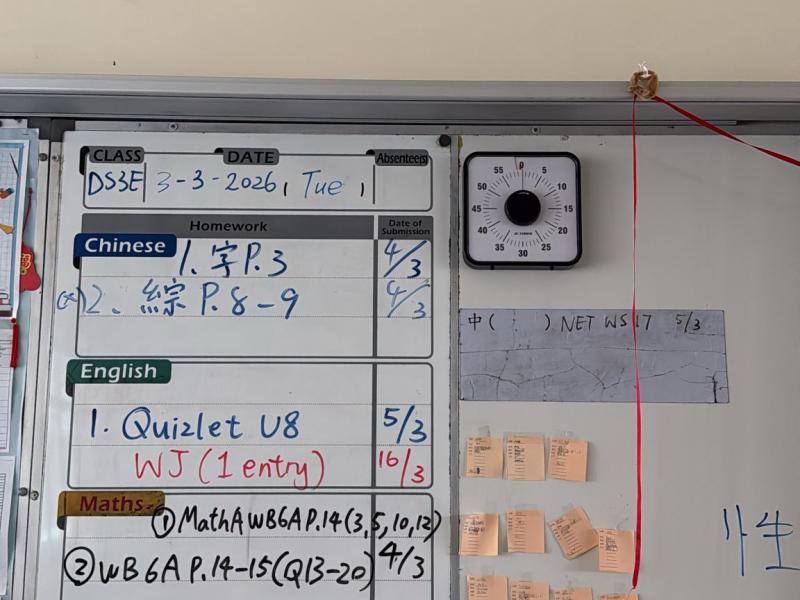 CLASS DATE Absentees
DS3E 3-3-2026, Tue,
Homework Date of Submission
Chinese
1. 字 P.3 4/3
2. 綜 P.8-9 4/3
English
1. Quizlet U8 5/3
WJ (1 entry) 16/3
Maths
① MathA WB6A P.14 (3, 5, 10, 12)
② WB 6A P.14-15 (Q13-20) 4/3
0 5 10 15 20 25 30 35 40 45 50 55
中( ) NET WS 17 5/3